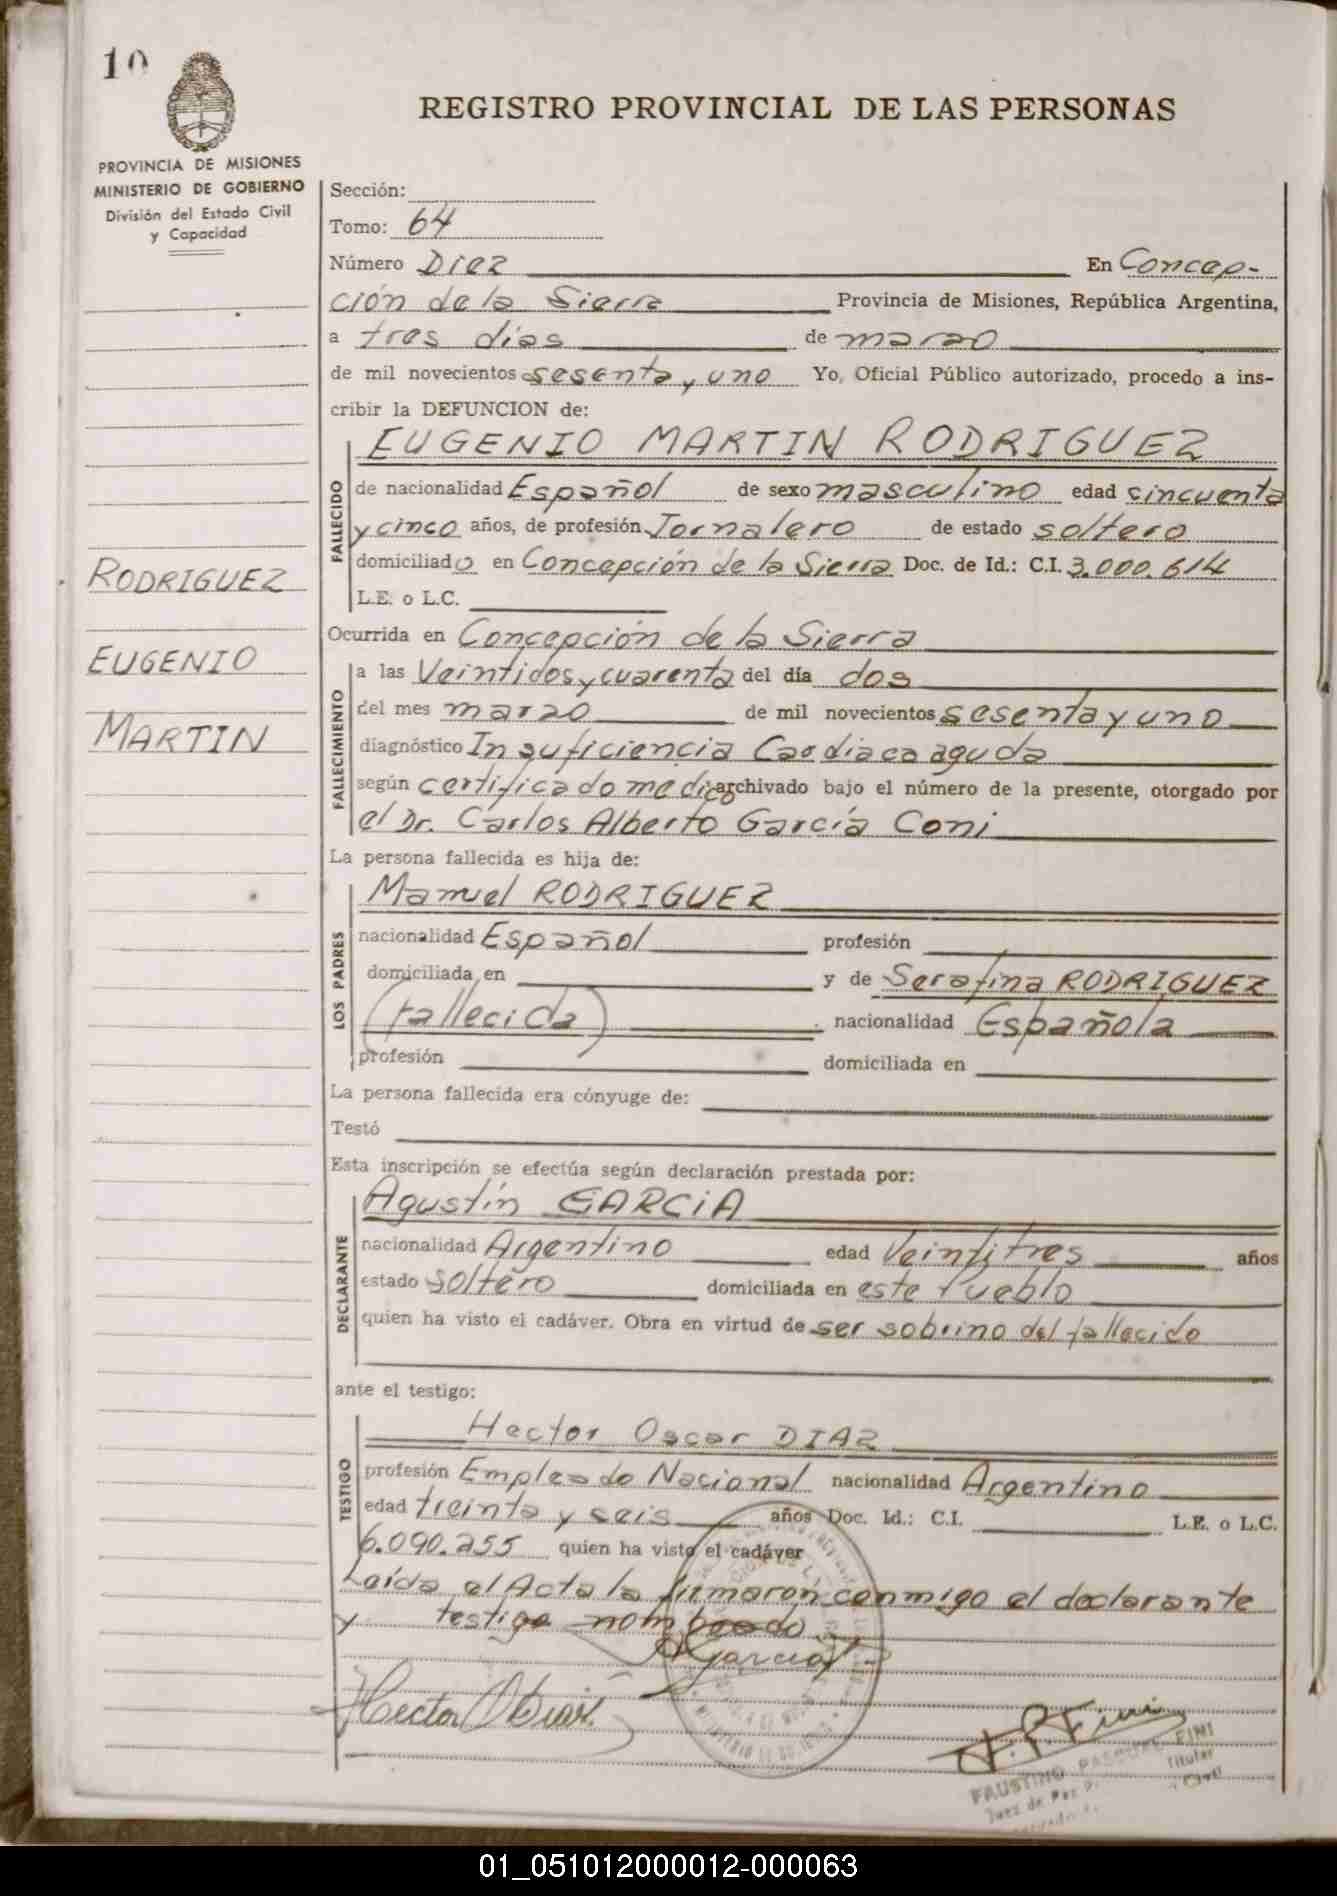 10
REGISTRO PROVINCIAL DE LAS PERSONAS
PROVINCIA DE MISIONES
MINISTERIO DE GOBIERNO
División del Estado Civil
y Capacidad
Sección:
Tomo: 64
Número Diez En Concep-
ción de la Sierra Provincia de Misiones, República Argentina,
a tres días de marzo
de mil novecientos sesenta y uno Yo, Oficial Público autorizado, procedo a ins-
cribir la DEFUNCION de:
EUGENIO MARTIN RODRIGUEZ
FALLECIDO
de nacionalidad Español de sexo masculino edad cincuenta
y cinco años, de profesión Jornalero de estado soltero
domiciliado en Concepción de la Sierra Doc. de Id.: C.I. 3.000.614
L.E. o L.C.
RODRIGUEZ
EUGENIO
MARTIN
Ocurrida en Concepción de la Sierra
FALLECIMIENTO
a las Veintidos y cuarenta del día dos
del mes marzo de mil novecientos sesenta y uno
diagnóstico Insuficiencia Cardiaca aguda
según certificado medico archivado bajo el número de la presente, otorgado por
el Dr. Carlos Alberto García Coni
La persona fallecida es hija de:
LOS PADRES
Manuel RODRIGUEZ
nacionalidad Español profesión
domiciliada en y de Serafina RODRIGUEZ
(fallecida) nacionalidad Española
profesión domiciliada en
La persona fallecida era cónyuge de:
Testó
Esta inscripción se efectúa según declaración prestada por:
DECLARANTE
Agustín GARCIA
nacionalidad Argentino edad Veintitres años
estado Soltero domiciliada en este Pueblo
quien ha visto el cadáver. Obra en virtud de ser sobrino del fallecido
ante el testigo:
TESTIGO
Hector Oscar DIAZ
profesión Empleado Nacional nacionalidad Argentino
edad treinta y seis años Doc. Id.: C.I. L.E. o L.C.
6.090.255 quien ha visto el cadáver
Leída el Acta la firmaron conmigo el declarante
y testigo nombrado
A Garcia
Hector O Diaz
F. P. Fini
FAUSTINO PASCUAL FINI
Juez de Paz Titular
Civil
01_051012000012-000063